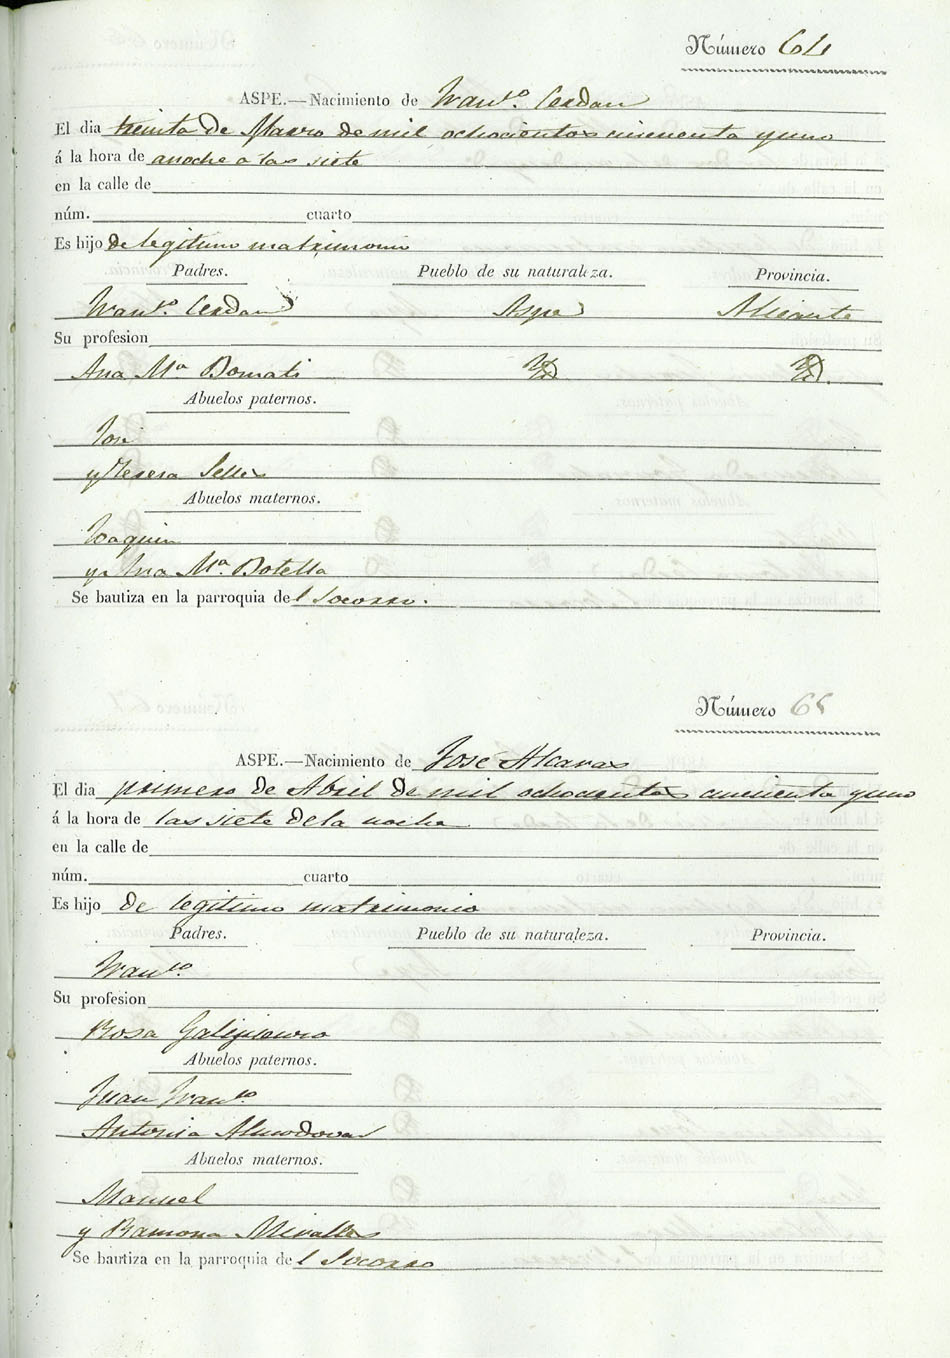 Número 64
ASPE.—Nacimiento de Franco. Cerdan
El dia treinta de Marzo de mil ochocientos cincuenta y uno
á la hora de anoche a las siete
en la calle de
núm. cuarto
Es hijo de legitimo matrimonio
Padres. Pueblo de su naturaleza. Provincia.
Franco. Cerdan Aspe Alicante
Su profesion
Ana Ma Bomati Yd Yd.
Abuelos paternos.
José
y Teresa Selles
Abuelos maternos.
Joaquin
y Ana Ma. Botella
Se bautiza en la parroquia del Socorro.
Número 65
ASPE.—Nacimiento de José Alcaras
El dia primero de Abril de mil ochocientos cincuenta y uno
á la hora de las siete de la noche
en la calle de
núm. cuarto
Es hijo de legitimo matrimonio
Padres. Pueblo de su naturaleza. Provincia.
Franco
Su profesion
Rosa Galipienso
Abuelos paternos.
Juan Franco
Antonia Almodovar
Abuelos maternos.
Manuel
y Ramona Miralles
Se bautiza en la parroquia del Socorro